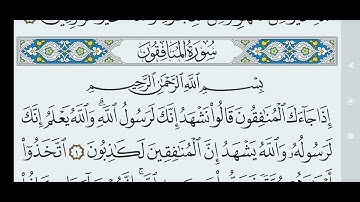 سُورَةُ المُنَافِقُونَ
بِسْمِ اللَّهِ الرَّحْمَٰنِ الرَّحِيمِ
إِذَا جَاءَكَ الْمُنَافِقُونَ قَالُوا نَشْهَدُ إِنَّكَ لَرَسُولُ اللَّهِ ۗ وَاللَّهُ يَعْلَمُ إِنَّكَ
لَرَسُولُهُ وَاللَّهُ يَشْهَدُ إِنَّ الْمُنَافِقِينَ لَكَاذِبُونَ ١ اتَّخَذُوا